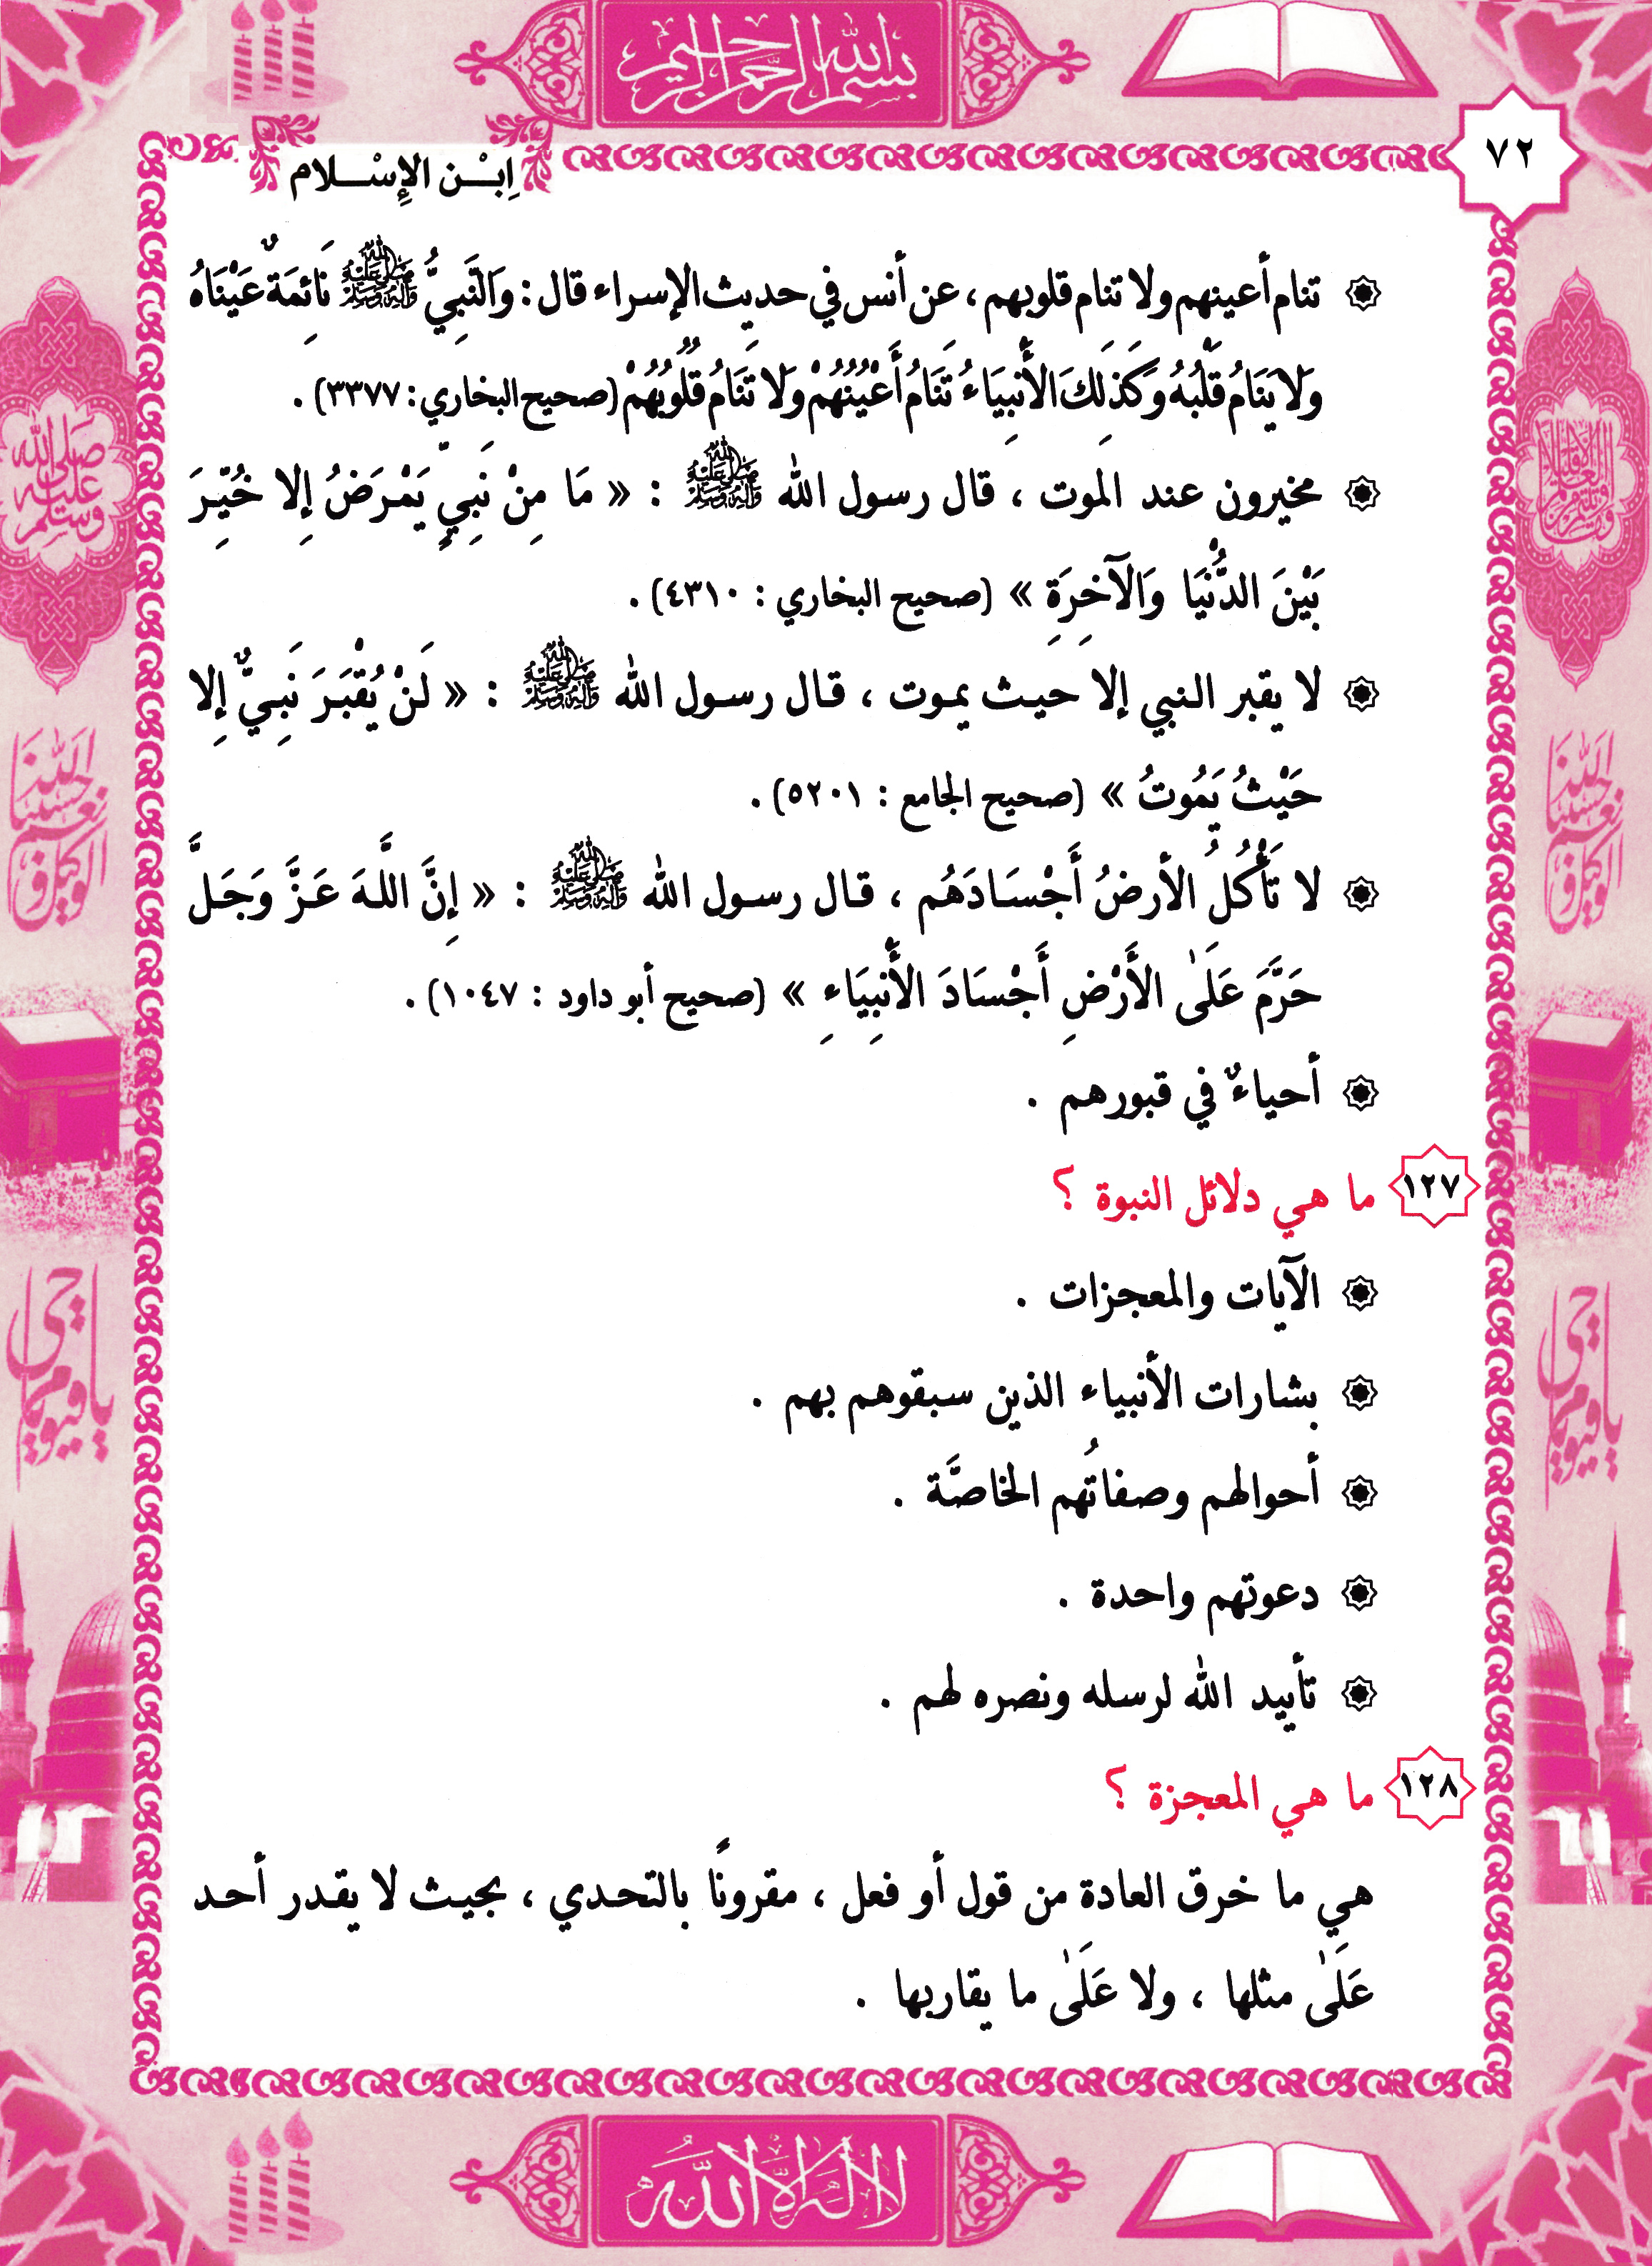 بسم الله الرحمن الرحيم
٧٢
اِبْـــن الإِسْـــلام
تنام أعينهم ولا تنام قلوبهم ، عن أنس في حديث الإسراء قال : وَالنَّبِيُّ ﷺ نَائِمَةٌ عَيْنَاهُ
وَلَا يَنَامُ قَلْبُهُ وَكَذَلِكَ الأَنْبِيَاءُ تَنَامُ أَعْيُنُهُمْ وَلا تَنَامُ قُلُوبُهُمْ (صحيح البخاري : ٣٣٧٧) .
مخيرون عند الموت ، قال رسول الله ﷺ : « مَا مِنْ نَبِيٍّ يَمْرَضُ إِلا خُيِّرَ
بَيْنَ الدُّنْيَا وَالآخِرَةِ » (صحيح البخاري : ٤٣١٠) .
لا يقبر النبي إلا حيث يموت ، قال رسول الله ﷺ : « لَنْ يُقْبَرَ نَبِيٌّ إِلا
حَيْثُ يَمُوتُ » (صحيح الجامع : ٥٢٠١) .
لا تَأْكُلُ الأرضُ أَجْسَادَهُم ، قال رسول الله ﷺ : « إِنَّ اللَّهَ عَزَّ وَجَلَّ
حَرَّمَ عَلَىٰ الأَرْضِ أَجْسَادَ الأَنْبِيَاءِ » (صحيح أبو داود : ١٠٤٧) .
أحياءٌ في قبورهم .
١٢٧ ما هي دلائل النبوة ؟
الآيات والمعجزات .
بشارات الأنبياء الذين سبقوهم بهم .
أحوالهم وصفاتُهم الخاصَّة .
دعوتهم واحدة .
تأييد الله لرسله ونصره لهم .
١٢٨ ما هي المعجزة ؟
هي ما خرق العادة من قول أو فعل ، مقرونًا بالتحدي ، بحيث لا يقدر أحد
عَلَىٰ مثلها ، ولا عَلَىٰ ما يقاربها .
لا إله إلا الله
صلى الله عليه وسلم
حسبنا الله ونعم الوكيل
يا حي يا قيوم